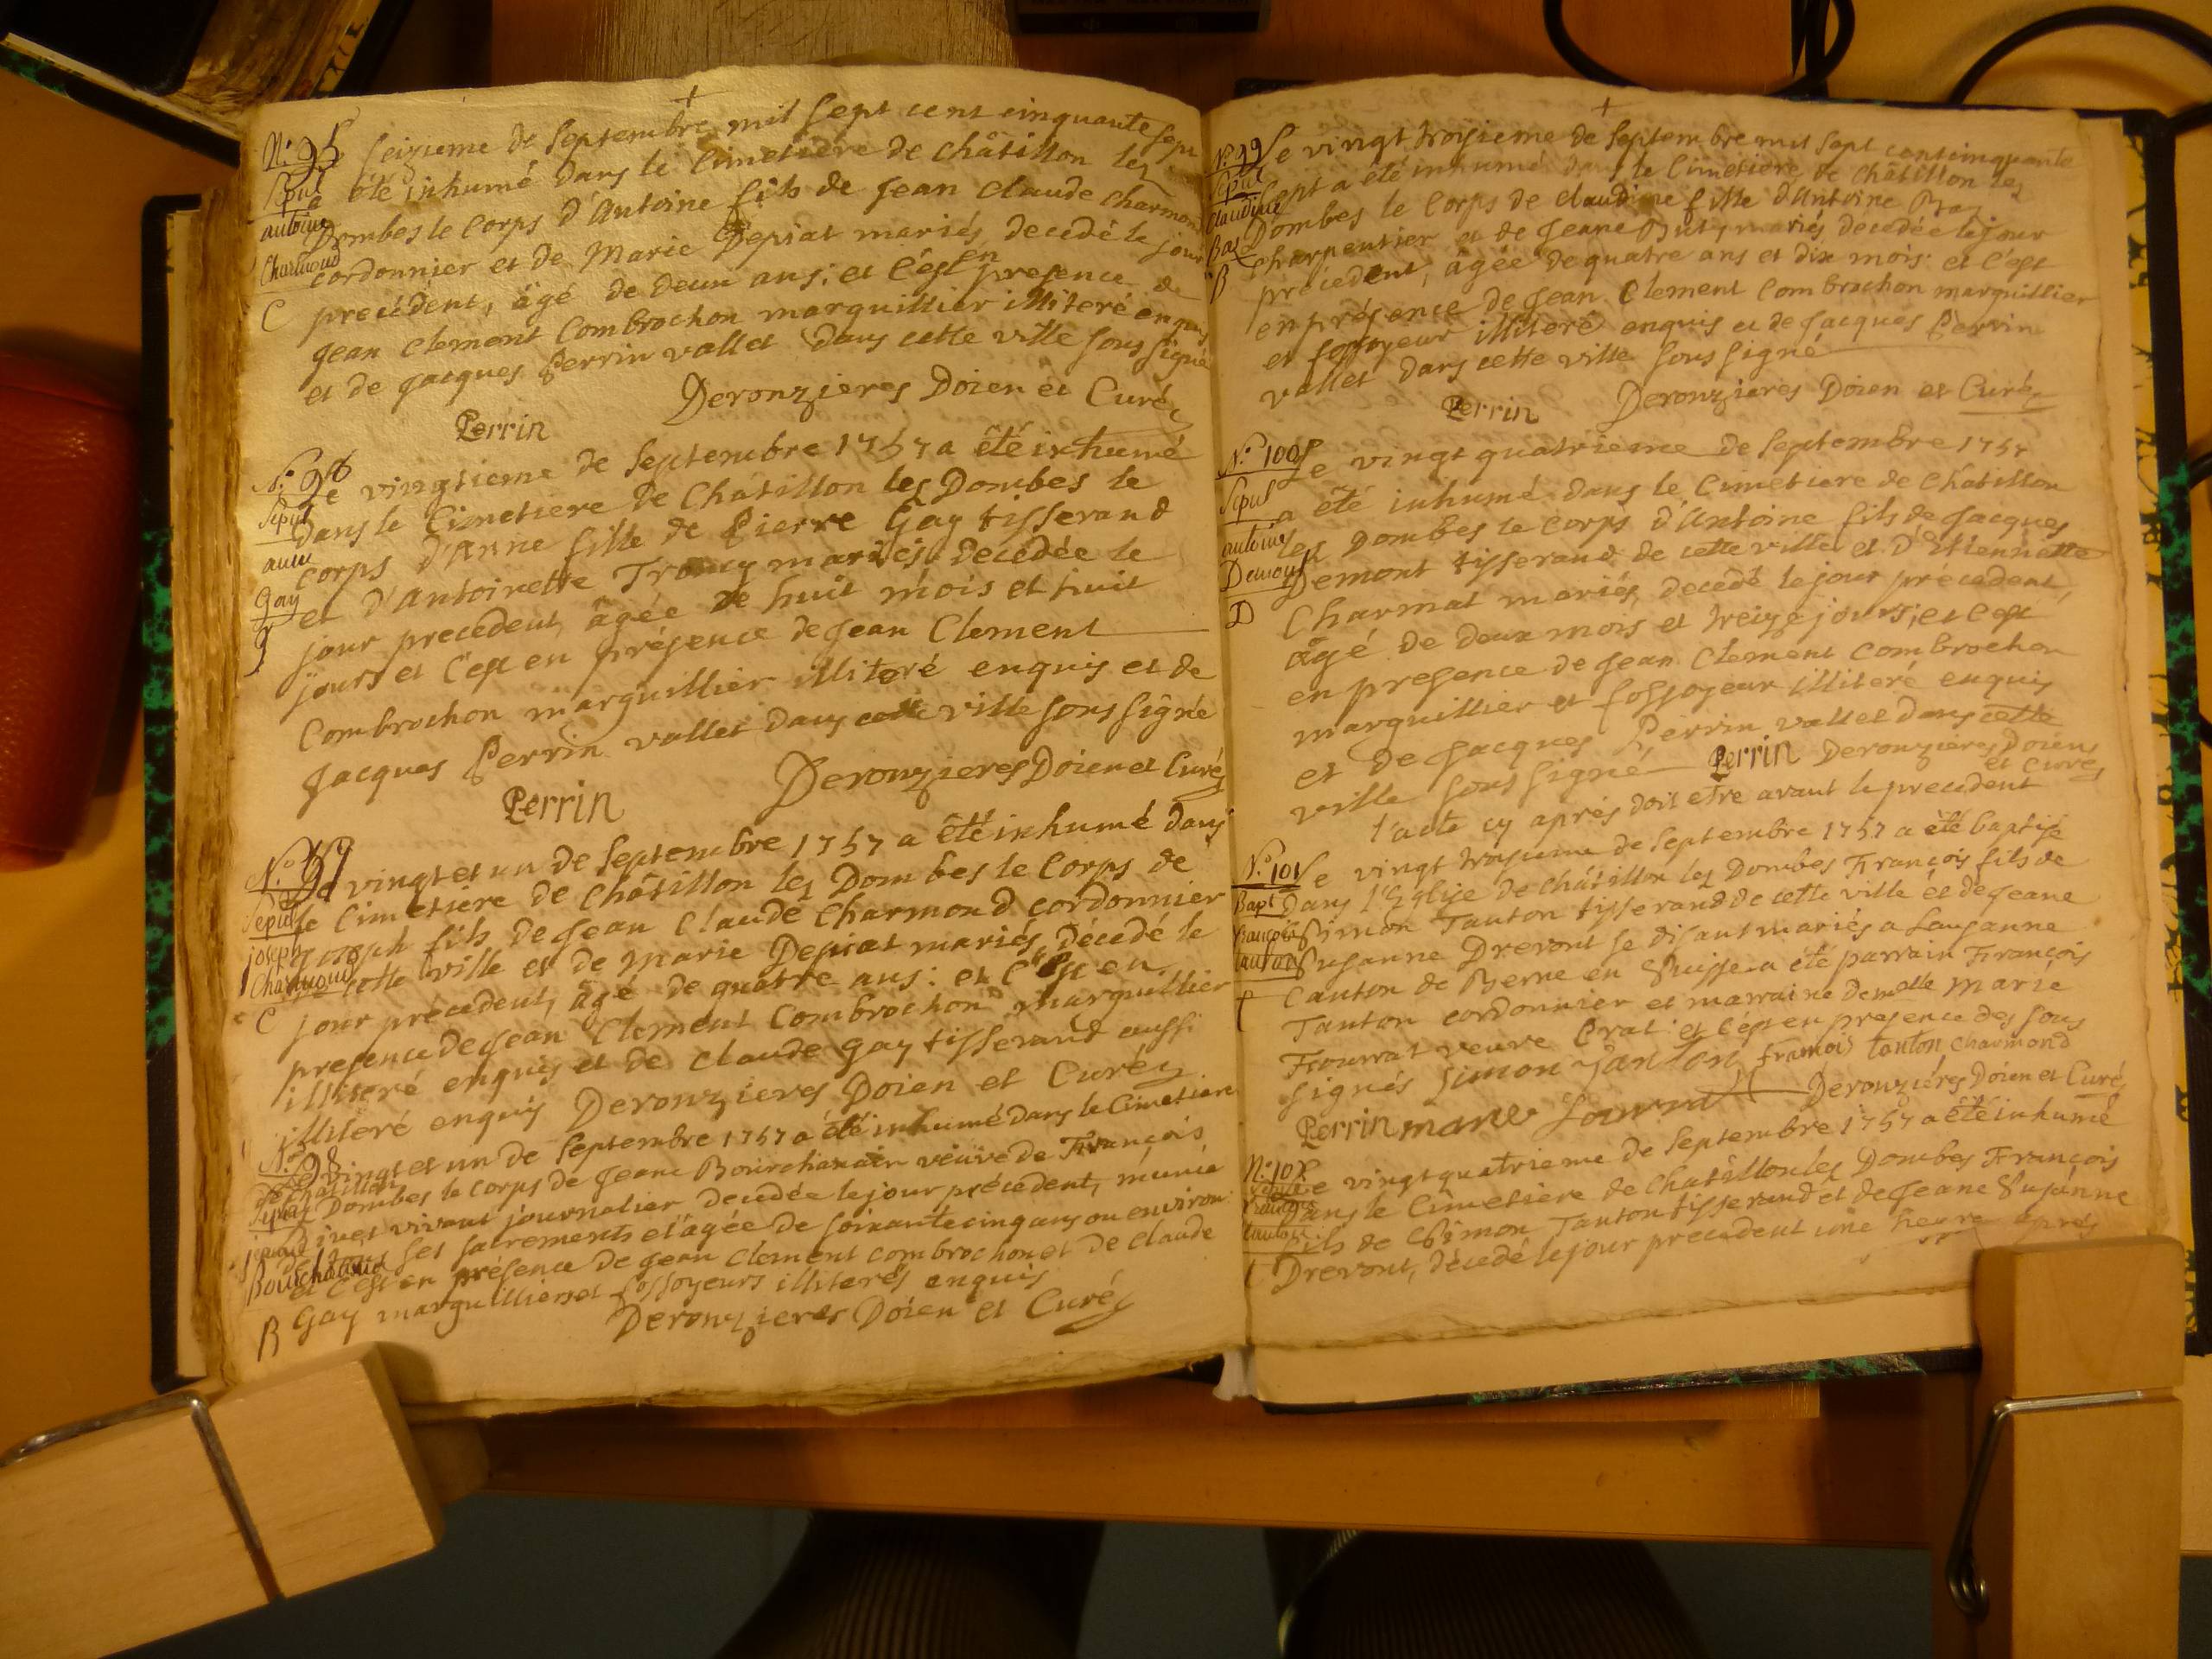 +
N.° 95 seizieme de Septembre mil sept cent cinquante sept
Sepul a été inhumé dans le Cimetiére de châtillon lez
antoine Dombes le Corps d'Antoine fils de Jean Claude charmond
Charmond cordonnier et de Marie Depiat mariés, decédé le jour
C precédent, âgé de deux ans: et c'est en presence de
Jean Clement Combrochon marguillier illiteré enquis
et de Jacques Perrin vallet dans cette ville sous signé
Perrin Deronzieres Doien et Curé
N.° 96 Le vingtieme de Septembre 1757 a été inhumé
Sepul dans le Cimetiere de Châtillon les Dombes le
anne corps d'Anne fille de Pierre Gay tisserand
Gay et d'Antoinette Troncy mariés decédée le
g jour precedent, âgée de huit mois et huit
jours et c'est en présence de Jean Clement
Combrochon marguillier illiteré enquis et de
Jacques Perrin vallet dans cette ville sous signé
Perrin Deronzieres Doien et Curé
N.° 97 Le vingt et un de Septembre 1757 a été inhumé dans
Sepul le Cimetiére de Châtillon lez Dombes le Corps de
joseph Joseph fils de Jean Claude Charmond cordonnier
Charmond de cette ville et de Marie Depiat mariés, décédé le
C jour précedent, âgé de quatre ans: et c'est en
presence de Jean Clement Combrochon marguillier
illiteré enquis et de Claude Gay tisserand aussi
illiteré enquis Deronzieres Doien et Curé
N.° 98 Le vingt et un de Septembre 1757 a été inhumé dans le Cimetiere
de châtillon
Sepul lez Dombes le corps de Jeane Bourchanain veuve de François
jeane Divet vivant journalier decedée le jour précedent, munie
de tous ses sacrements et âgée de soixante cinq ans ou environ:
et c'est en présence de Jean Clement combrochon et de claude
B Gay marguilliers et fossoyeurs illiterés enquis
Deronzieres Doien et Curé
+
N.° 99 Le vingt troisieme de Septembre mil sept cent cinquante
Sepul sept a été inhumé dans le Cimetiére de Châtillon lez
Claudine Dombes le Corps de claudine fille d'Antoine
charpentier et de Jeane mariés decédée le jour
B précedent, âgée de quatre ans et dix mois: et c'est
en présence de Jean Clement Combrochon marguillier
et fossoyeur illiteré enquis et de Jacques Perrin
vallet dans cette ville sous signé
Perrin Deronzieres Doien et Curé
N.° 100 Le vingt quatrieme de Septembre 1757
Sepul a été inhumé dans le Cimetiere de Châtillon
antoine les Dombes le corps d'Antoine fils de Jacques
Demont Demont tisserand de cette ville et d'Etiennette
D Charmat mariés, decedé le jour précedent,
âgé de deux mois et treize jours; et c'est
en presence de Jean Clement Combrochon
marguillier et fossoyeur illiteré enquis
et de Jacques Perrin vallet dans cette
ville sous signé Perrin Deronzieres Doien
et Curé
l'acte cy aprés doit etre avant le precedent
N.° 101 Le vingt troisieme de Septembre 1757 a été baptisé
Bapt dans l'Eglise de Châtillon lez Dombes François fils de
françois Simon Tanton tisserand de cette ville et de Jeane
tanton Susanne Drevont se disant mariés a Lausanne
t Canton de Berne en Suisse. a été parrain François
Tanton cordonnier et marraine demelle Marie
Fourrat veuve Prat: et c'est en presence des sous
signés Simon Tanton françois tanton Charmond
Perrin marie Deronziéres Doien et Curé
N.° 102 Le vingt quatrieme de Septembre 1757 a été inhumé
Sepul dans le Cimetiére de Chatillon lez Dombes François
françois
tanton fils de Simon Tanton tisserand et de Jeane Susanne
t Drevont, décédé le jour precedent une heure aprés